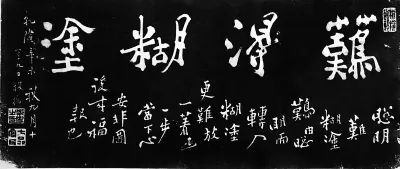 難得糊塗
聰明
難
糊塗
難由聰
明而
轉入
糊塗
更難放
一着退
一步
當下心
安非圖
後来福
報也
乾隆辛未秋九月十
九日板橋